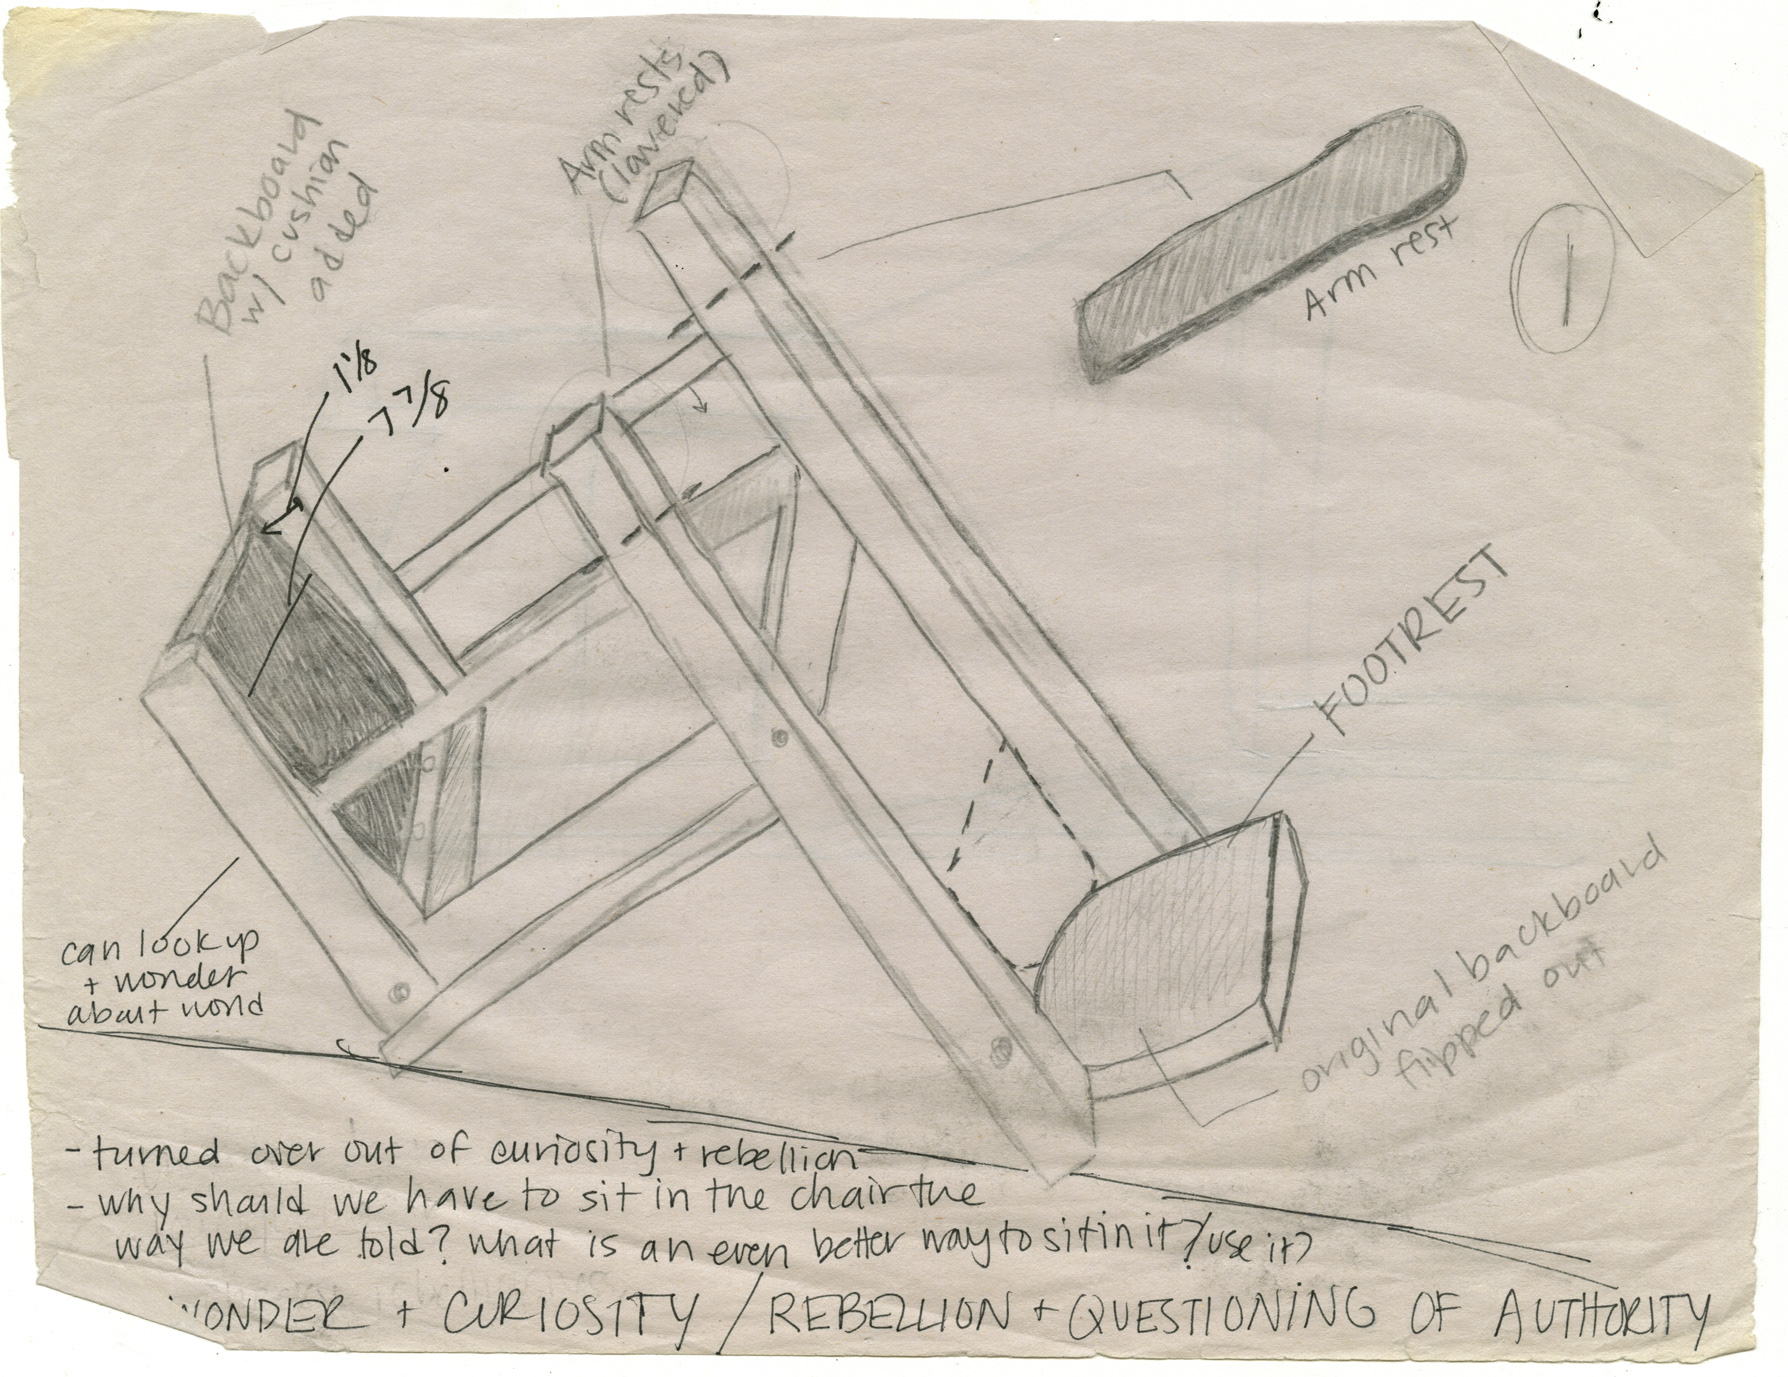 Arm rests
(lowered)
Backboard
w/ cushion
added
Arm rest
1
1 1/8
7 7/8
FOOTREST
original backboard
flipped out
can look up
+ wonder
about world
- turned over out of curiosity + rebellion
- why should we have to sit in the chair the
way we are told? what is an even better way to sit in it?/use it?
WONDER + CURIOSITY / REBELLION + QUESTIONING OF AUTHORITY